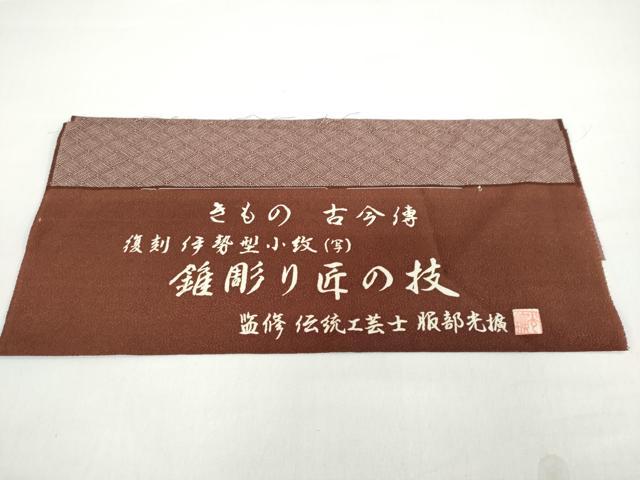 きもの 古今傳
復刻 伊勢型小紋(写)
錐彫り匠の技
監修 伝統工芸士 服部光擴